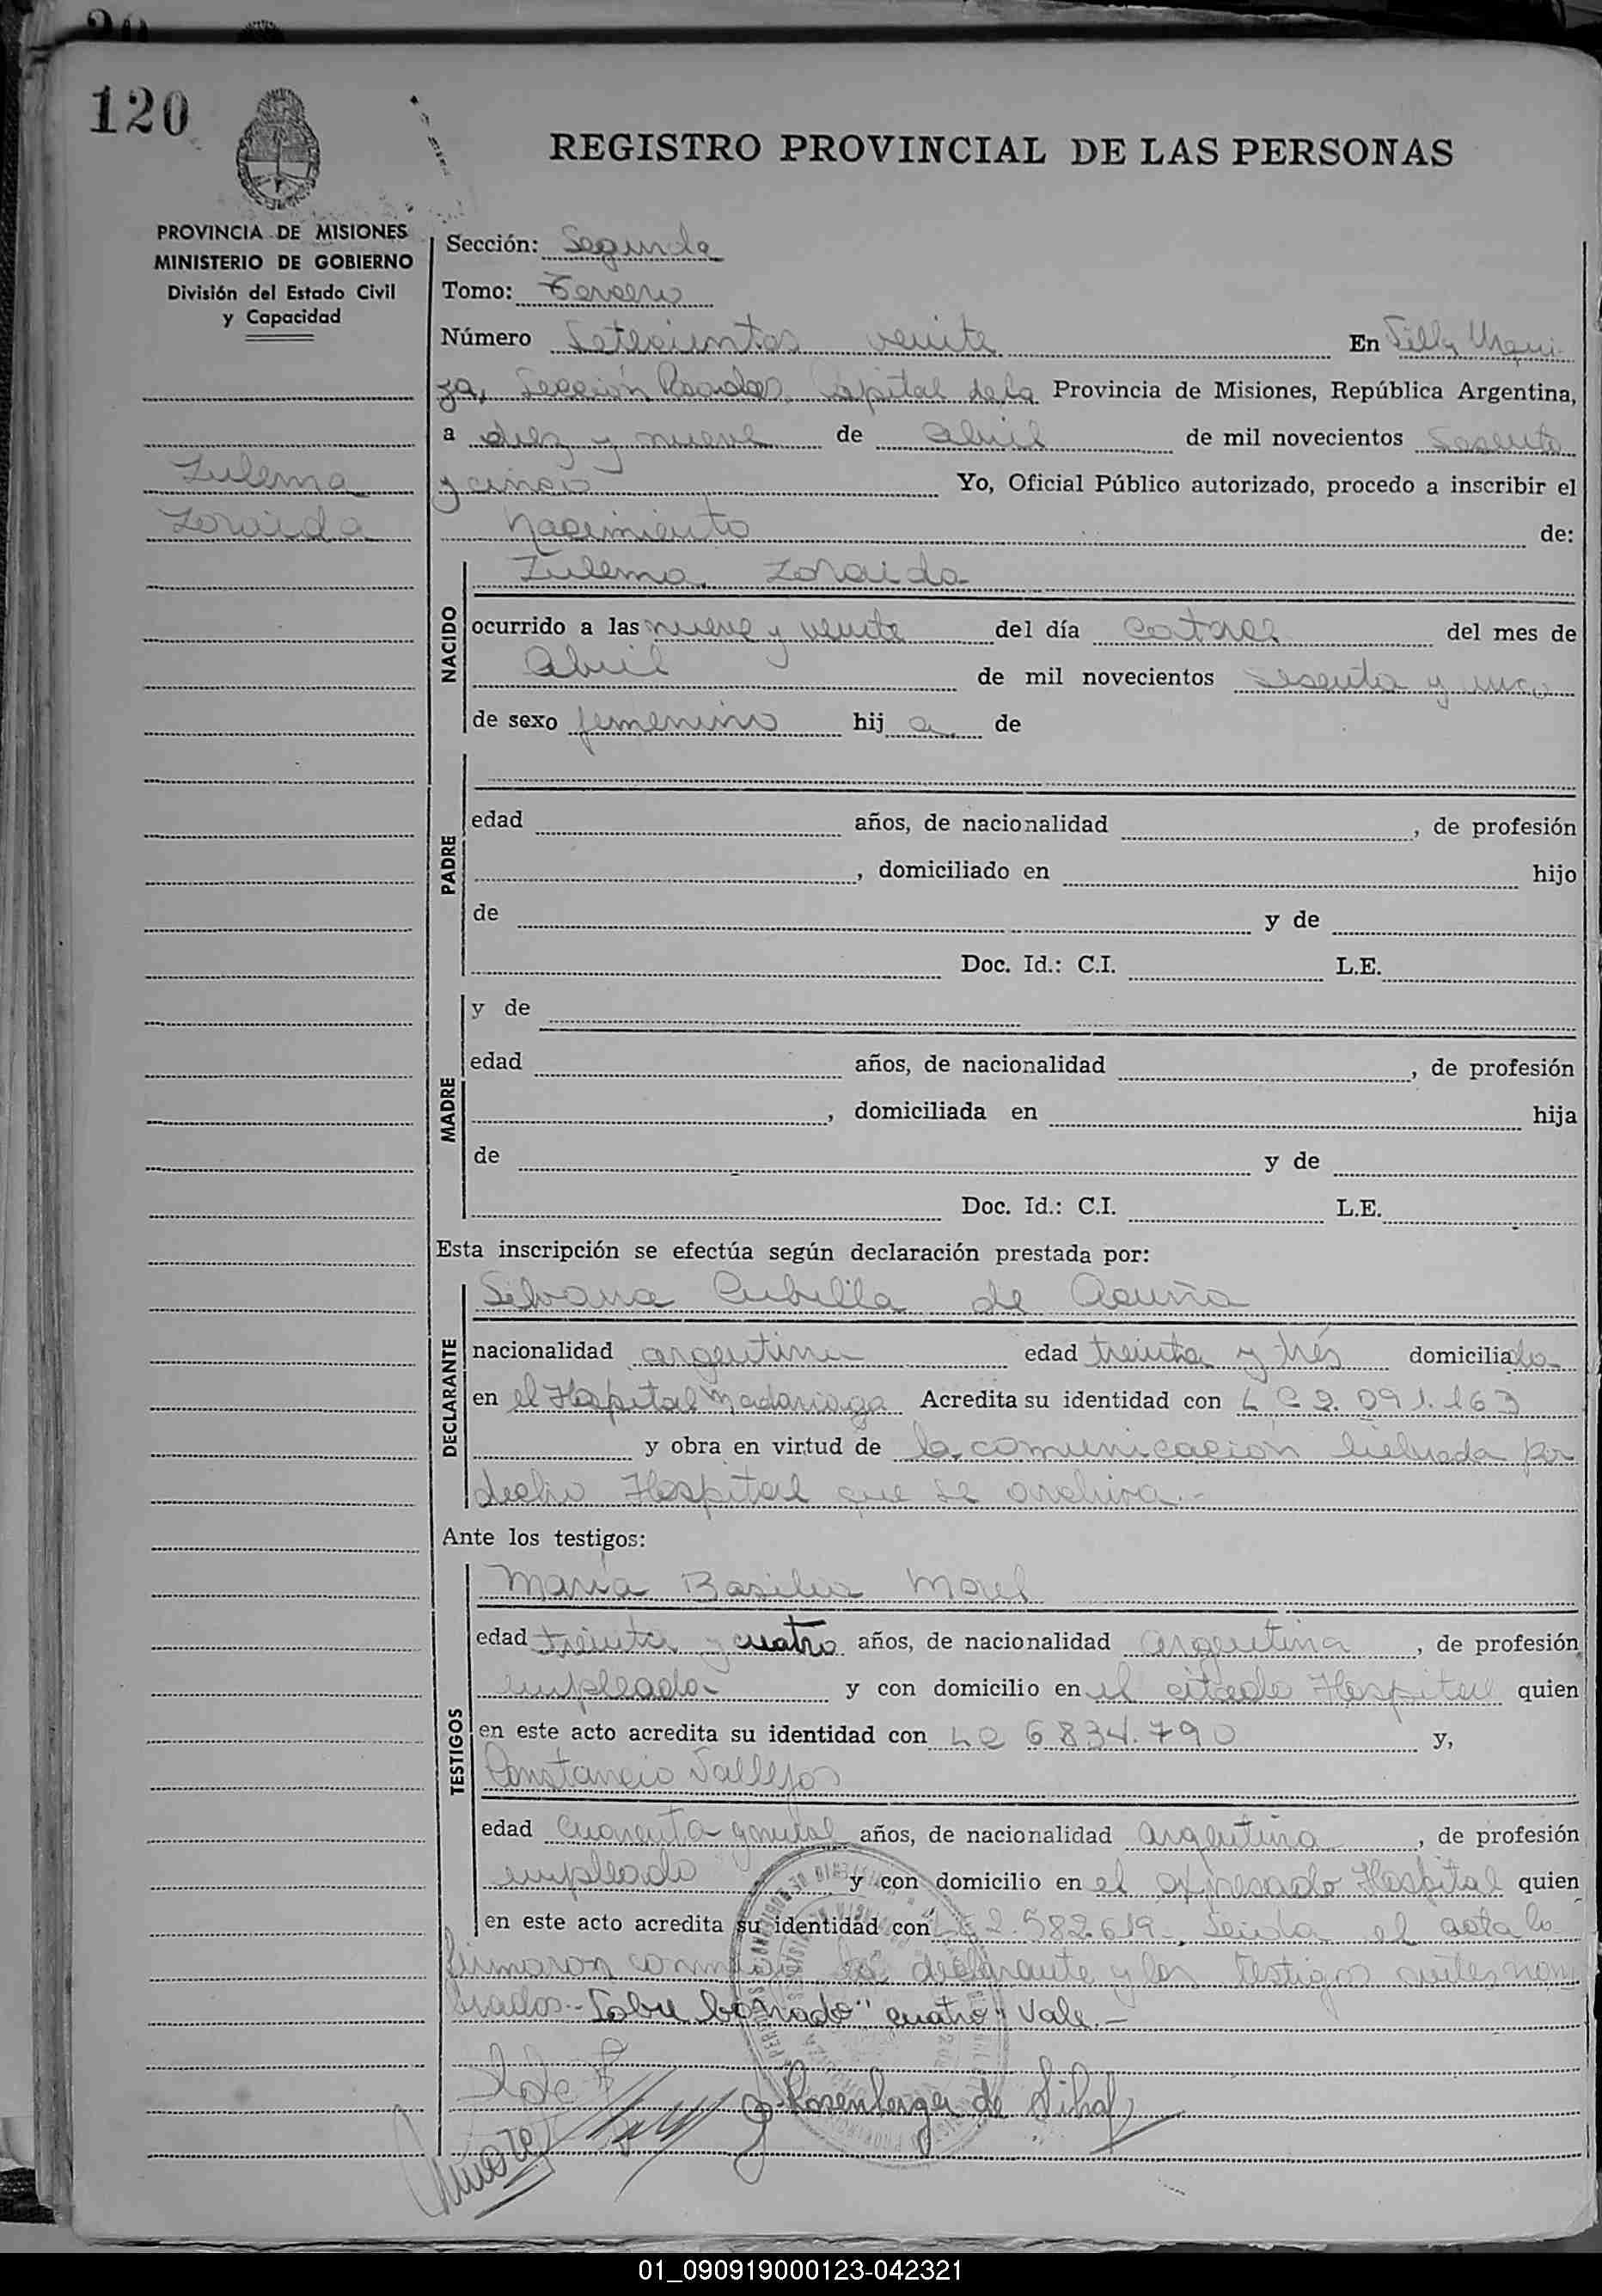 120
REGISTRO PROVINCIAL DE LAS PERSONAS
PROVINCIA DE MISIONES
MINISTERIO DE GOBIERNO
División del Estado Civil
y Capacidad
Zulema
Zoraida
Sección: Segunda
Tomo: Tercero
Número Setecientos veinte En Villa Urqui
za, Sección Posadas, Capital de la Provincia de Misiones, República Argentina,
a diez y nueve de abril de mil novecientos sesenta
y cinco Yo, Oficial Público autorizado, procedo a inscribir el
nacimiento de:
NACIDO
Zulema Zoraida
ocurrido a las nueve y veinte del día catorce del mes de
abril de mil novecientos sesenta y cinco
de sexo femenino hij a de
PADRE
edad años, de nacionalidad , de profesión
, domiciliado en hijo
de y de
Doc. Id.: C.I. L.E.
MADRE
y de
edad años, de nacionalidad , de profesión
, domiciliada en hija
de y de
Doc. Id.: C.I. L.E.
Esta inscripción se efectúa según declaración prestada por:
DECLARANTE
Silvana Cubilla de Acuña
nacionalidad argentina edad treinta y trés domiciliada
en el Hospital Madariaga Acredita su identidad con L C 2.091.163
y obra en virtud de la comunicación librada por
dicho Hospital que se archiva.-
Ante los testigos:
TESTIGOS
María Basilia Morel
edad treinta y cuatro años, de nacionalidad argentina , de profesión
empleada- y con domicilio en el citado Hospital quien
en este acto acredita su identidad con LC 6834.790 y,
Constancio Vallejos
edad cuarenta y nueve años, de nacionalidad argentina , de profesión
empleado y con domicilio en el expresado Hospital quien
en este acto acredita su identidad con LE 2.582.619. Leida el acta la
firmaron conmigo la declarante y los testigos antes nom
brados.- Sobre borrado "cuatro" Vale.-
Rosenberger de